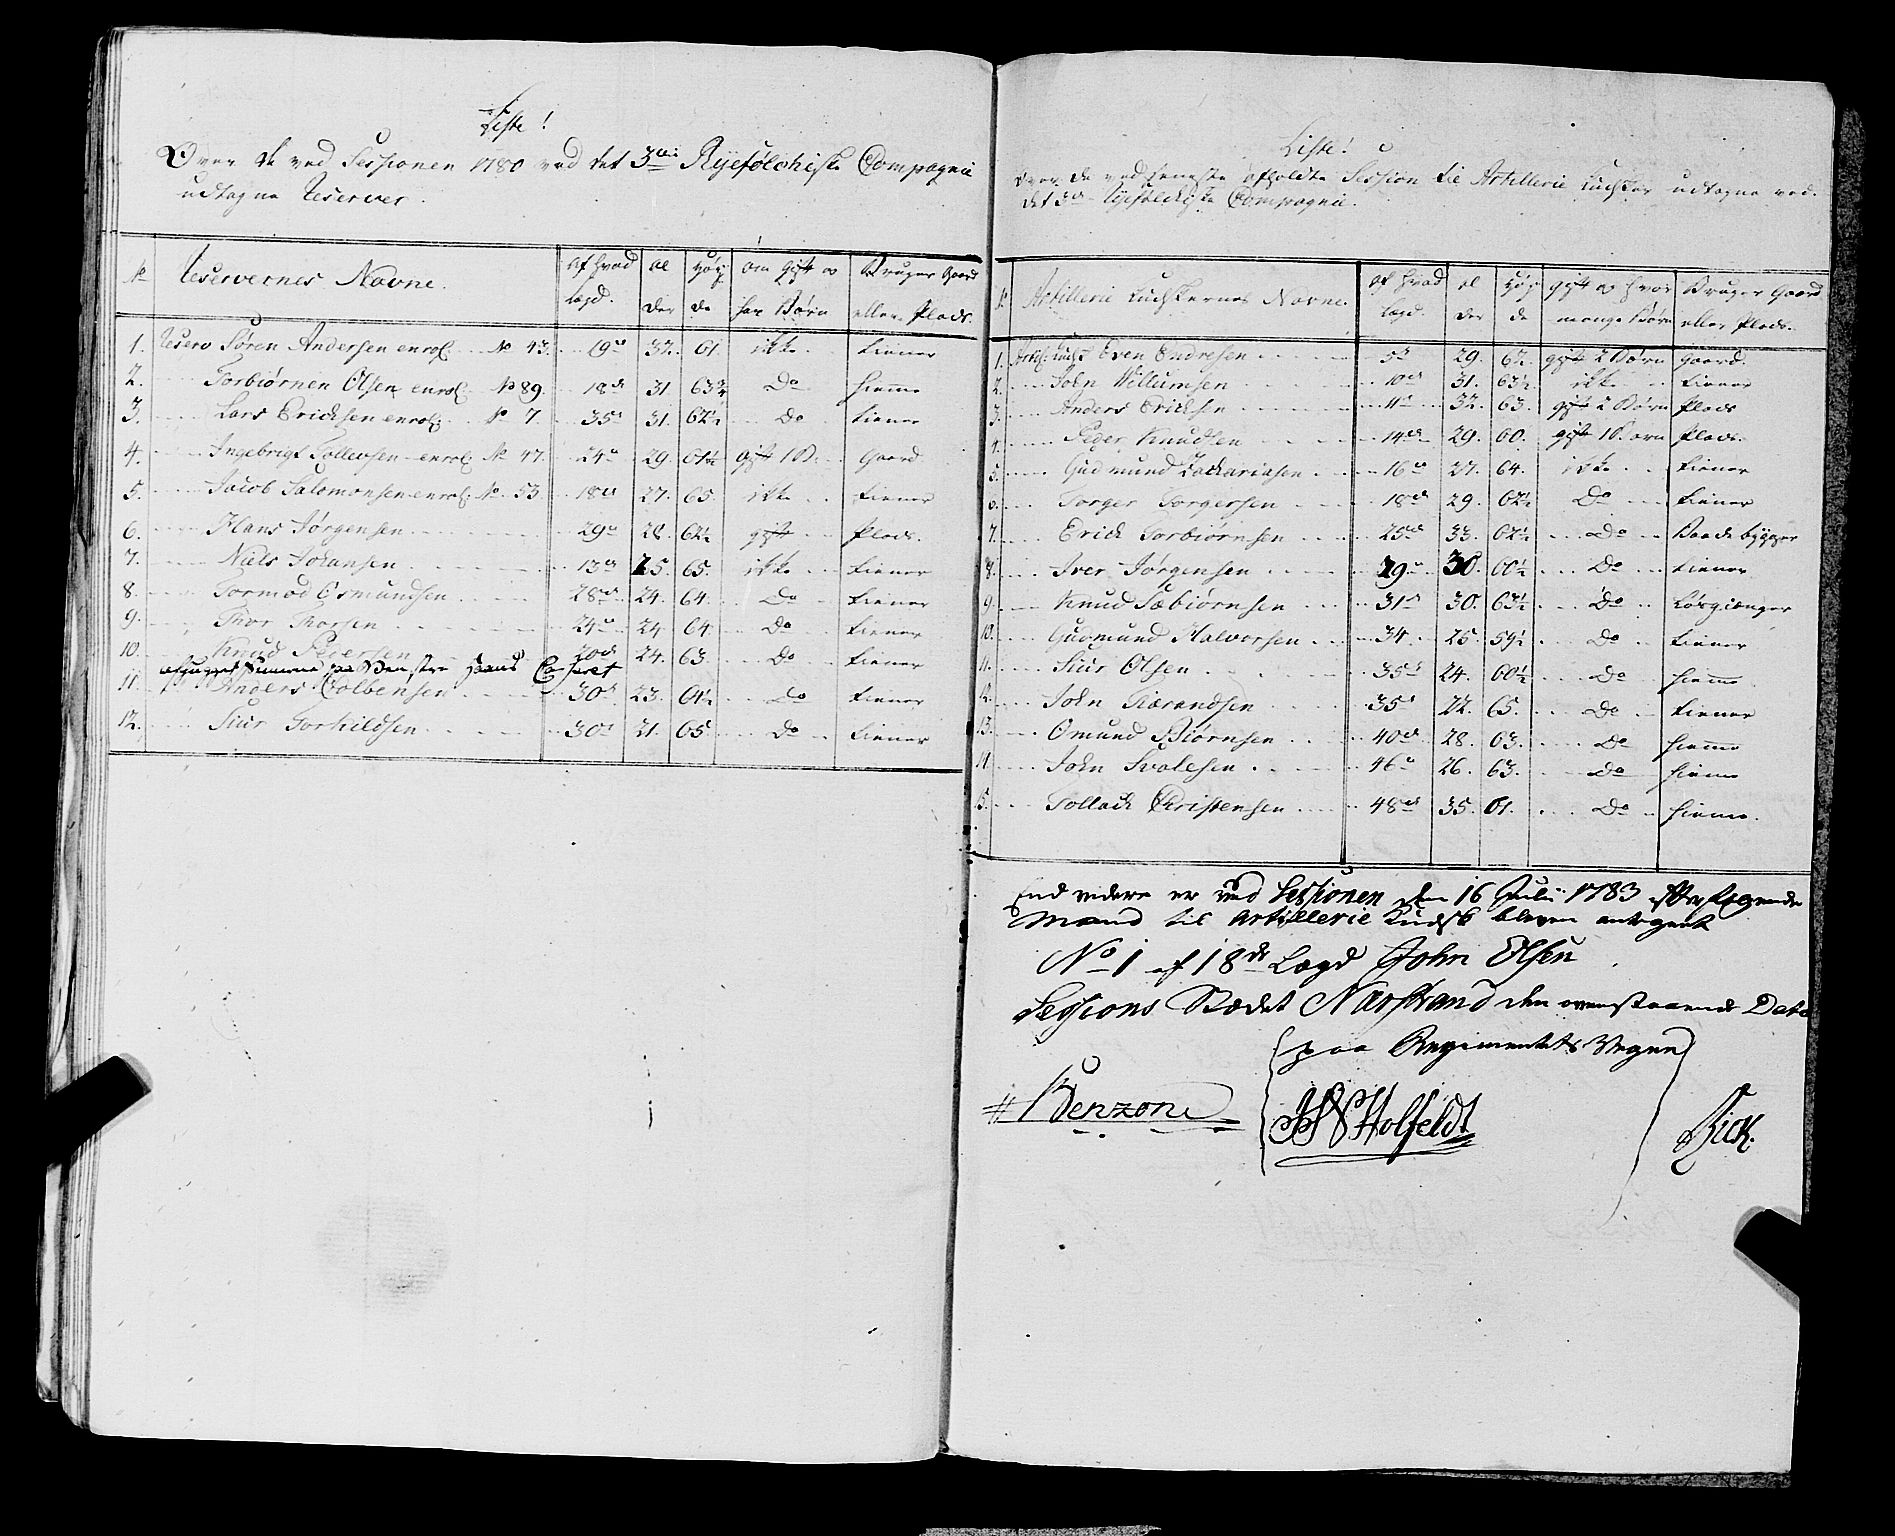 Liste!
Over de ved Sessionen 1780 ved det 3die Ryefölchiske Compagnie
udtagne Reserver.
No Reservernes Navne. af hvad Lægd. Alder Høyde om gift og har Børn Bruger Gaard eller Plads.
1. Reserv Sören Andersen enrol. No 43. 19de 32. 61 ikke tiener
2. Torbiörnen Olsen enrol. No 89. 18de 31 63 3/4 Do hiemme
3. Lars Ericksen enrol. No 7. 35te 31. 62½ Do tiener
4. Ingebrigt Tollevsen enrol. No 47. 24de 29. 61½ Gift 1 B. Gaard
5. Jacob Salomonsen enrol. No 53. 18de 27. 65. ikke tiener
6. Hans Jörgensen 29de 28. 62½ gift Plads.
7. Niels Johansen 13de 25. 65. ikke tiener
8. Tormod Osmundsen 28de 24. 64. Do tiener
9. Thor Thorsen 24de 24. 64. Do tiener
10. Knud Pedersen 20de 24. 63. Do tiener
afhugget paa Venstre Haand
11. Anders Colbensen 30te 23. 61½ Do tiener
12. Siur Torkildsen 30te 21. 65. Do tiener
Liste!
over de ved seneste afholdte Session til Artillerie Kudske udtagne ved
det 3die Ryefölckiske Compagnie.
No Artillerie Kudskernes Navne. af hvad Lægd. Alder Høyde gift og hvor mange Børn Bruger Gaard eller Plads.
1. Artil: Kudsk Even Endresen 5te 29. 62. gift 2 Børn Gaard.
2. John Villumsen 10de 31. 63½ ikke tiener
3. Anders Ericksen 11te 32. 63. gift 2 Børn Plads
4. Peder Knudsen 14de 29. 60. gift 1 Barn Plads.
5. Gudmund Zachariasen 16de 27. 64. ikke tiener
6. Torger Torgersen 18de 29. 62½ Do tiener
7. Erick Torbiörnsen 25de 33. 62½ Do Baadebygger
8. Iver Jörgensen 29de 30. 60½ Do tiener
9. Knud Sæbiörnsen 31te 30. 63½ Do Løsgiænger
10. Gudmund Halvorsen 34. 25. 59½ Do tiener
11. Siur Olsen 35te 24. 60½ Do hiemme
12. John Tiærandsen 35te 22. 65. Do tiener
13. Omund Biörnsen 40de 28. 63. Do hiemme
14. John Svalesen 46de 26. 63. Do hiemme
15. Tollack Christensen 48de 35. 61. Do hiemme.
End videre er ved Sessionen den 16 Julii 1783 efterfølgende
Mand til Artillerie Kudsk bleven antegnet
No 1 af 18de Lægd John Olsen
Sessions Stædet Narstrand den ovenstaaende Dato
paa Regimentets Vegne
Benzon HSHolfeldt Bick.